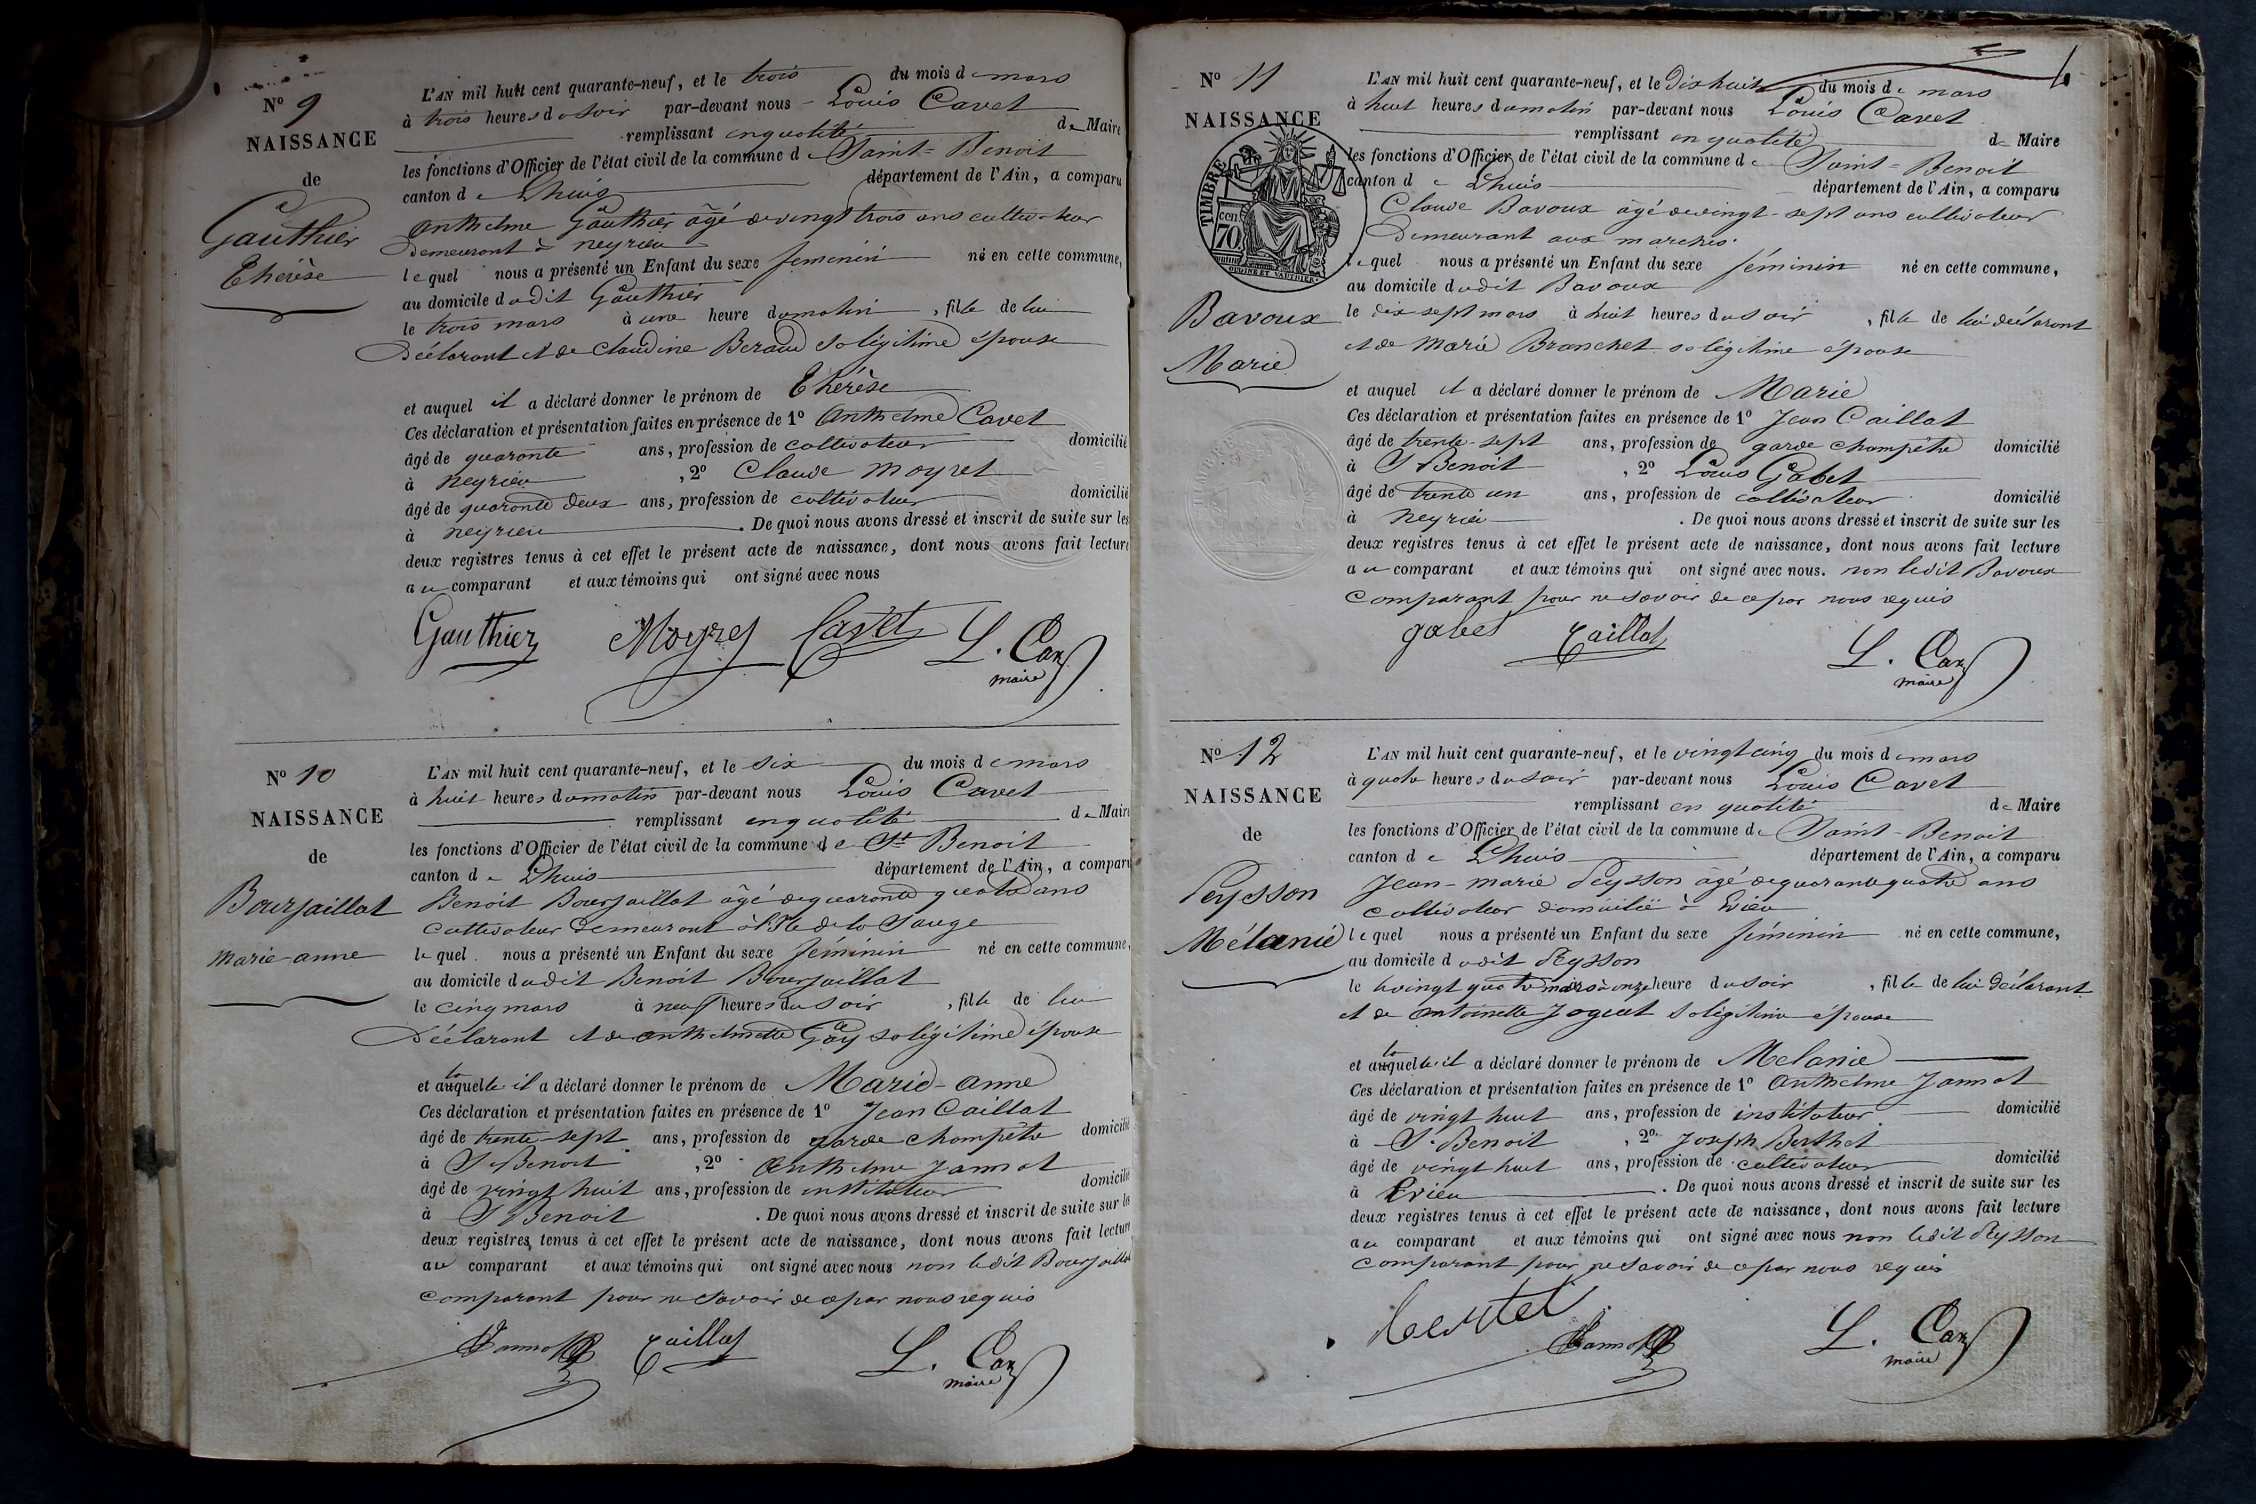 N° 9
NAISSANCE
de
Gauthier
Thérèse
L'AN mil huit cent quarante-neuf, et le trois du mois de mars
à trois heures du soir par-devant nous Louis Cavet
remplissant en qualité de Maire
les fonctions d'Officier de l'état civil de la commune de Saint-Benoit
canton de Lhuis département de l'Ain, a comparu
Anthelme Gauthier âgé de vingt trois ans cultivateur
demeurant à neyrieu
lequel nous a présenté un Enfant du sexe féminin né en cette commune,
au domicile dudit Gauthier
le trois mars à une heure du matin, fille de lui
déclarant et de Claudine Beraud sa légitime épouse
et auquel il a déclaré donner le prénom de Thérèse
Ces déclaration et présentation faites en présence de 1° Anthelme Cavet
âgé de quarante ans, profession de cultivateur domicilié
à neyrieu, 2° Claude Moyret
âgé de quarante deux ans, profession de cultivateur domicilié
à neyrieu. De quoi nous avons dressé et inscrit de suite sur les
deux registres tenus à cet effet le présent acte de naissance, dont nous avons fait lecture
au comparant et aux témoins qui ont signé avec nous
Gauthier Moyret Cavet L. Cavet
maire
N° 10
NAISSANCE
de
Bourjaillat
Marie-anne
L'AN mil huit cent quarante-neuf, et le six du mois de mars
à huit heures du matin par-devant nous Louis Cavet
remplissant en qualité de Maire
les fonctions d'Officier de l'état civil de la commune de St Benoit
canton de Lhuis département de l'Ain, a comparu
Benoit Bourjaillat âgé de quarante quatre ans
cultivateur demeurant à l'Ile de la Sauge
lequel nous a présenté un Enfant du sexe féminin né en cette commune,
au domicile dudit Benoit Bourjaillat
le cinq mars à neuf heures du soir, fille de lui
déclarant et de anthelmette Gay sa légitime épouse
et auquelle il a déclaré donner le prénom de Marie-anne
Ces déclaration et présentation faites en présence de 1° Jean Caillat
âgé de trente-sept ans, profession de garde champêtre domicilié
à St Benoit, 2° Anthelme Jannot
âgé de vingt huit ans, profession de instituteur domicilié
à St Benoit. De quoi nous avons dressé et inscrit de suite sur les
deux registres tenus à cet effet le présent acte de naissance, dont nous avons fait lecture
au comparant et aux témoins qui ont signé avec nous non ledit Bourjaillat
comparant pour ne savoir de ce par nous requis
Jannot Caillat L. Cavet
maire
N° 11
NAISSANCE
TIMBRE
CEN
70
Bavoux
Marie
L'AN mil huit cent quarante-neuf, et le dix huit du mois de mars
à huit heures du matin par-devant nous Louis Cavet
remplissant en qualité de Maire
les fonctions d'Officier de l'état civil de la commune de Saint-Benoit
canton de Lhuis département de l'Ain, a comparu
Claude Bavoux âgé de vingt-sept ans cultivateur
demeurant aux marches
lequel nous a présenté un Enfant du sexe féminin né en cette commune,
au domicile dudit Bavoux
le dix sept mars à huit heures du soir, fille de lui déclarant
et de Marie Branchet sa légitime épouse
et auquel il a déclaré donner le prénom de Marie
Ces déclaration et présentation faites en présence de 1° Jean Caillat
âgé de trente-sept ans, profession de garde champêtre domicilié
à St Benoit, 2° Louis Gabet
âgé de trente un ans, profession de cultivateur domicilié
à Neyrieu. De quoi nous avons dressé et inscrit de suite sur les
deux registres tenus à cet effet le présent acte de naissance, dont nous avons fait lecture
au comparant et aux témoins qui ont signé avec nous. non ledit Bavoux
comparant pour ne savoir de ce par nous requis
gabet Caillat L. Cavet
maire
N° 12
NAISSANCE
de
Peysson
Mélanie
L'AN mil huit cent quarante-neuf, et le vingt cinq du mois de mars
à quatre heures du soir par-devant nous Louis Cavet
remplissant en qualité de Maire
les fonctions d'Officier de l'état civil de la commune de Saint-Benoit
canton de Lhuis département de l'Ain, a comparu
Jean-marie Peysson âgé de quarante quatre ans
cultivateur domicilié à Evieu
lequel nous a présenté un Enfant du sexe féminin né en cette commune,
au domicile dudit Peysson
le vingt quatre mars à onze heure du soir, fille de lui déclarant
et de antoinette Joguet sa légitime épouse
et auquelle il a déclaré donner le prénom de Melanie
Ces déclaration et présentation faites en présence de 1° Anthelme Jannot
âgé de vingt huit ans, profession de instituteur domicilié
à St Benoit, 2° Joseph Berthet
âgé de vingt huit ans, profession de cultivateur domicilié
à Evieu. De quoi nous avons dressé et inscrit de suite sur les
deux registres tenus à cet effet le présent acte de naissance, dont nous avons fait lecture
au comparant et aux témoins qui ont signé avec nous non ledit Peysson
comparant pour ne savoir de ce par nous requis
Jannot L. Cavet
maire